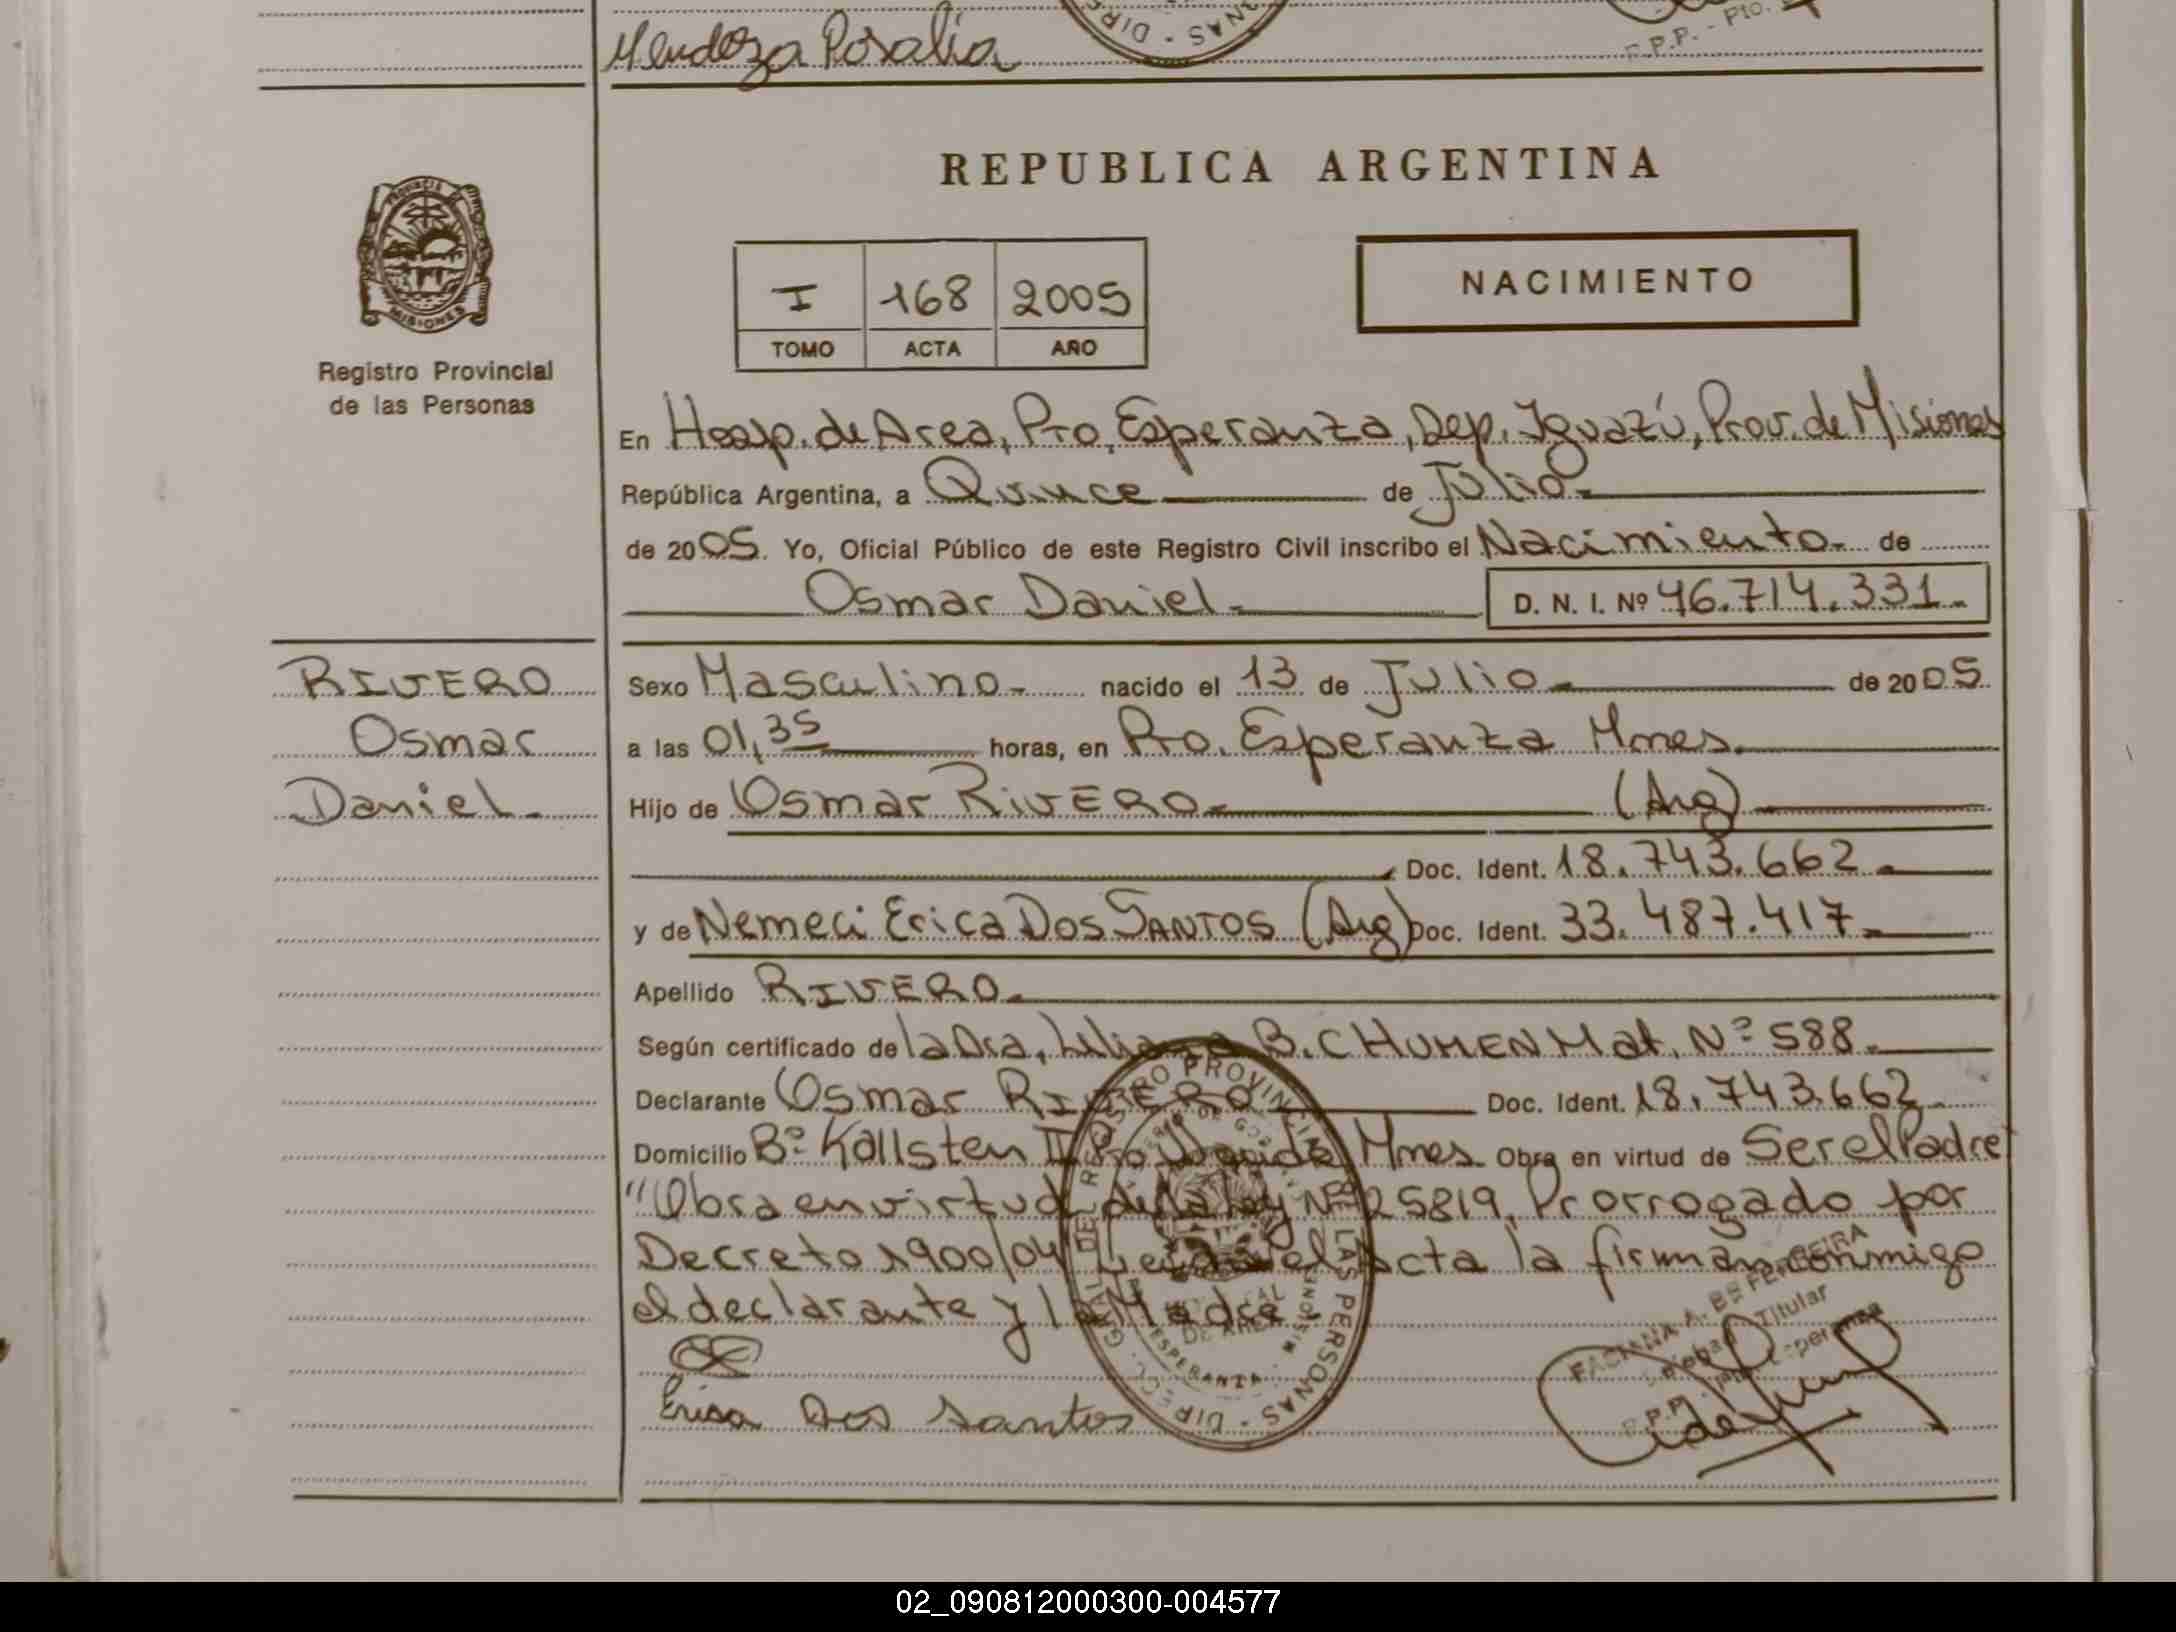 Mendoza Rosalia
REPUBLICA ARGENTINA
I 168 2005
TOMO ACTA AÑO
NACIMIENTO
PROVINCIA DE MISIONES
Registro Provincial
de las Personas
En Hosp. de Area, Pto. Esperanza, Dep. Iguazú, Prov. de Misiones
República Argentina, a Quince de Julio
de 2005. Yo, Oficial Público de este Registro Civil inscribo el Nacimiento de
Osmar Daniel D. N. I. Nº 46.714.331.
RIVERO
Osmar
Daniel
Sexo Masculino nacido el 13 de Julio de 2005
a las 01,35 horas, en Pto. Esperanza Mnes.
Hijo de Osmar RIVERO (Arg)
Doc. Ident. 18.743.662
y de Nemeci Erica Dos SANTOS (Arg) Doc. Ident. 33.487.417
Apellido RIVERO
Según certificado de la Dra. Liliana B. CHUMEN Mat. Nº 588
Declarante Osmar RIVERO Doc. Ident. 18.743.662
Domicilio Bº Kallsten II Pto Mnes Obra en virtud de Ser el Padre
"Obra en virtud de la Ley Nº 25819, Prorrogado por
Decreto 1900/04 Leida el Acta la firman conmigo
el declarante y la Madre
Erica Dos Santos
DIRECC. GRAL. DE REGISTRO PROVINCIAL DE LAS PERSONAS
ESPERANZA - MISIONES
Titular
02_090812000300-004577